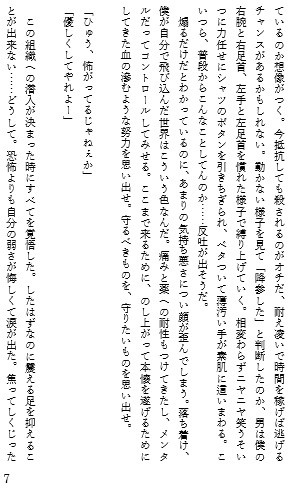 ているのか想像がつく。今抵抗しても殺されるのがオチだ、耐え凌いで時間を稼げば逃げる
チャンスがあるかもしれない。動かない様子を見て「降参した」と判断したのか、男は僕の
右腕と右足首、左手と左足首を慣れた様子で縛り上げていく。相変わらずニヤニヤ笑うそい
つに力任せにシャツのボタンを引きちぎられ、ベタついて薄汚い手が素肌に這いまわる。こ
いつら、普段からこんなことしてんのか……反吐が出そうだ。
煽るだけだとわかっているのに、あまりの気持ち悪さについ顔が歪んでしまう。落ち着け、
僕が自分で飛び込んだ世界はこういう色なんだ。痛みと薬への耐性もつけてきたし、メンタ
ルだってコントロールしてみせる。ここまで来るために、のし上がって本懐を遂げるために
してきた血の滲むような努力を思い出せ。守るべきものを、守りたいものを思い出せ。
「ひゅう、怖がってるじゃねぇか」
「優しくしてやれよー」
この組織への潜入が決まった時にすべてを覚悟した。したはずなのに震える足を抑えるこ
とが出来ない……どうして。恐怖よりも自分の弱さが悔しくて涙が出た。焦ってしくじった
7